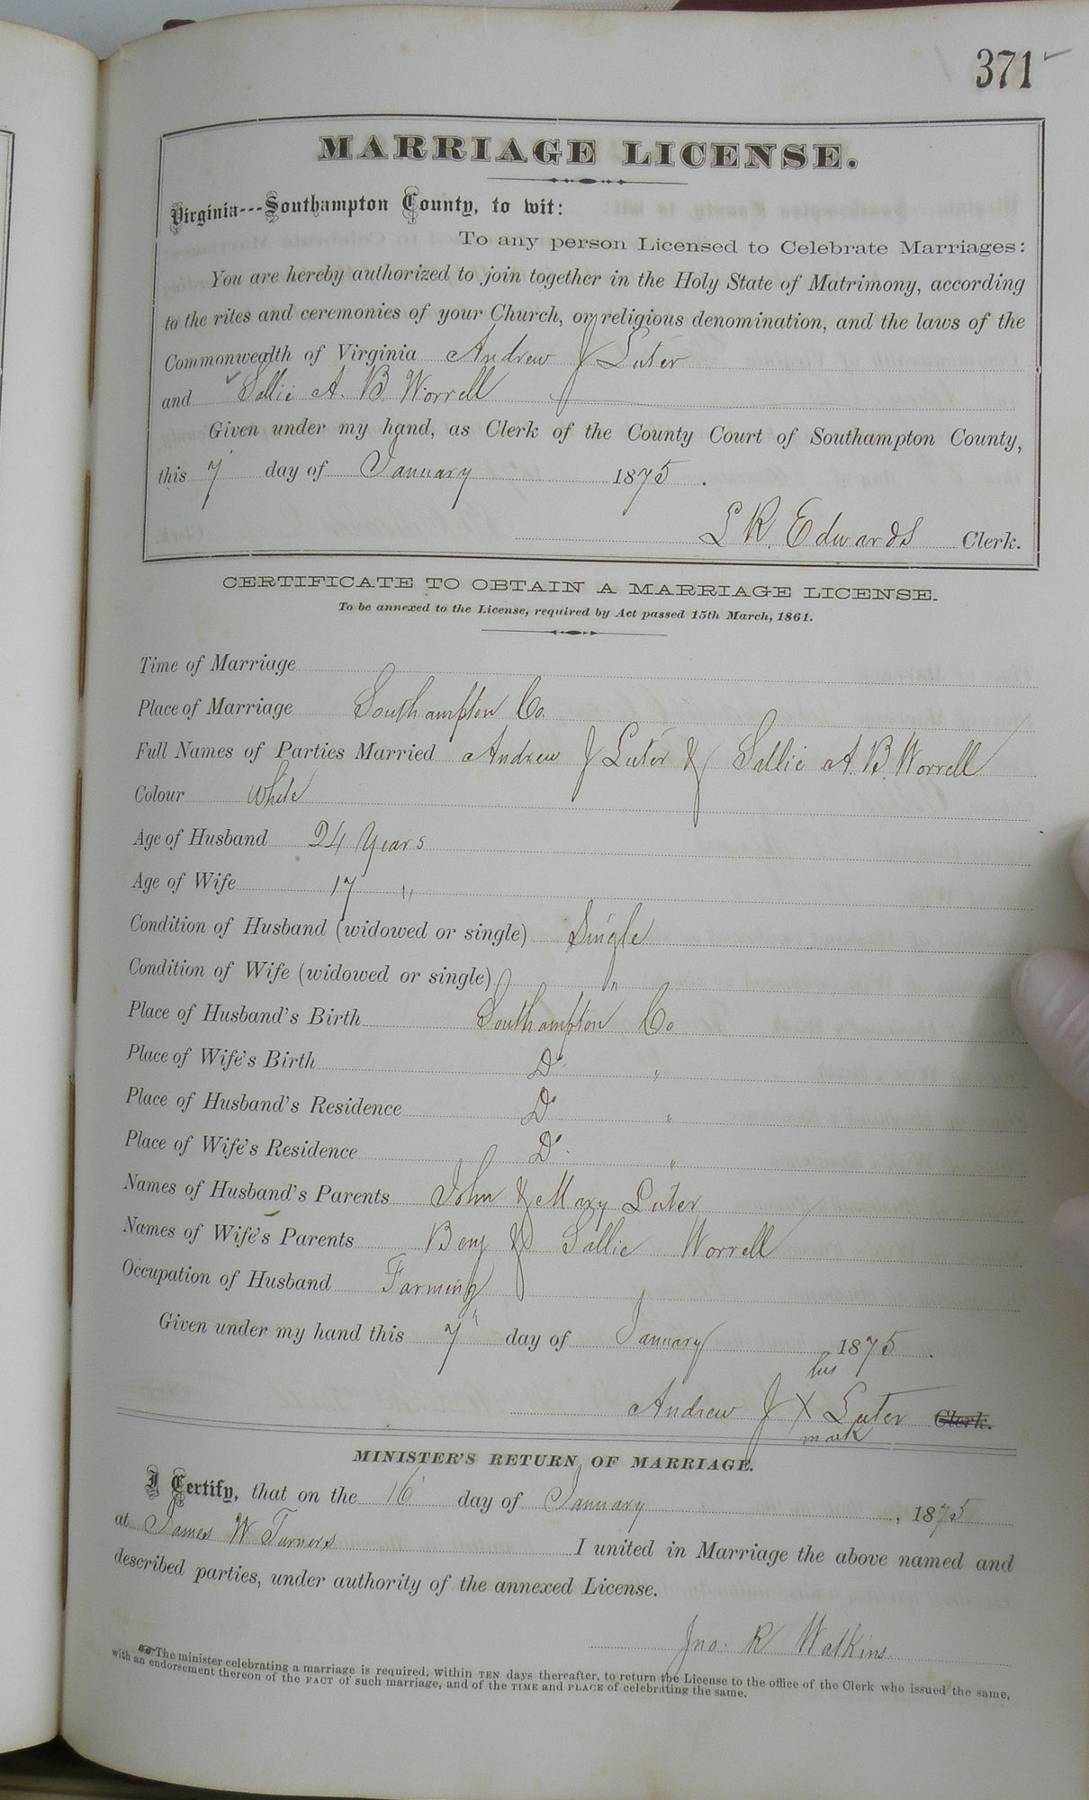 371
MARRIAGE LICENSE.
Virginia---Southampton County, to wit:
To any person Licensed to Celebrate Marriages:
You are hereby authorized to join together in the Holy State of Matrimony, according
to the rites and ceremonies of your Church, or religious denomination, and the laws of the
Commonwealth of Virginia Andrew J Luter
and Sallie A. B. Worrell
Given under my hand, as Clerk of the County Court of Southampton County,
this 7 day of January 1875.
L R. Edwards Clerk.
CERTIFICATE TO OBTAIN A MARRIAGE LICENSE.
To be annexed to the License, required by Act passed 15th March, 1861.
Time of Marriage
Place of Marriage Southampton Co.
Full Names of Parties Married Andrew J Luter & Sallie A. B. Worrell
Colour White
Age of Husband 24 Years
Age of Wife 17 "
Condition of Husband (widowed or single) Single
Condition of Wife (widowed or single) "
Place of Husband's Birth Southampton Co
Place of Wife's Birth Do "
Place of Husband's Residence Do "
Place of Wife's Residence Do "
Names of Husband's Parents John & Mary Luter
Names of Wife's Parents Benj & Sallie Worrell
Occupation of Husband Farming
Given under my hand this 7 day of January 1875.
his
Andrew J X Luter Clerk.
mark
MINISTER'S RETURN OF MARRIAGE.
I Certify, that on the 16 day of January, 1875
at James W Turners I united in Marriage the above named and
described parties, under authority of the annexed License.
Jno. R Watkins
The minister celebrating a marriage is required, within TEN days thereafter, to return the License to the office of the Clerk who issued the same,
with an endorsement thereon of the FACT of such marriage, and of the TIME and PLACE of celebrating the same.